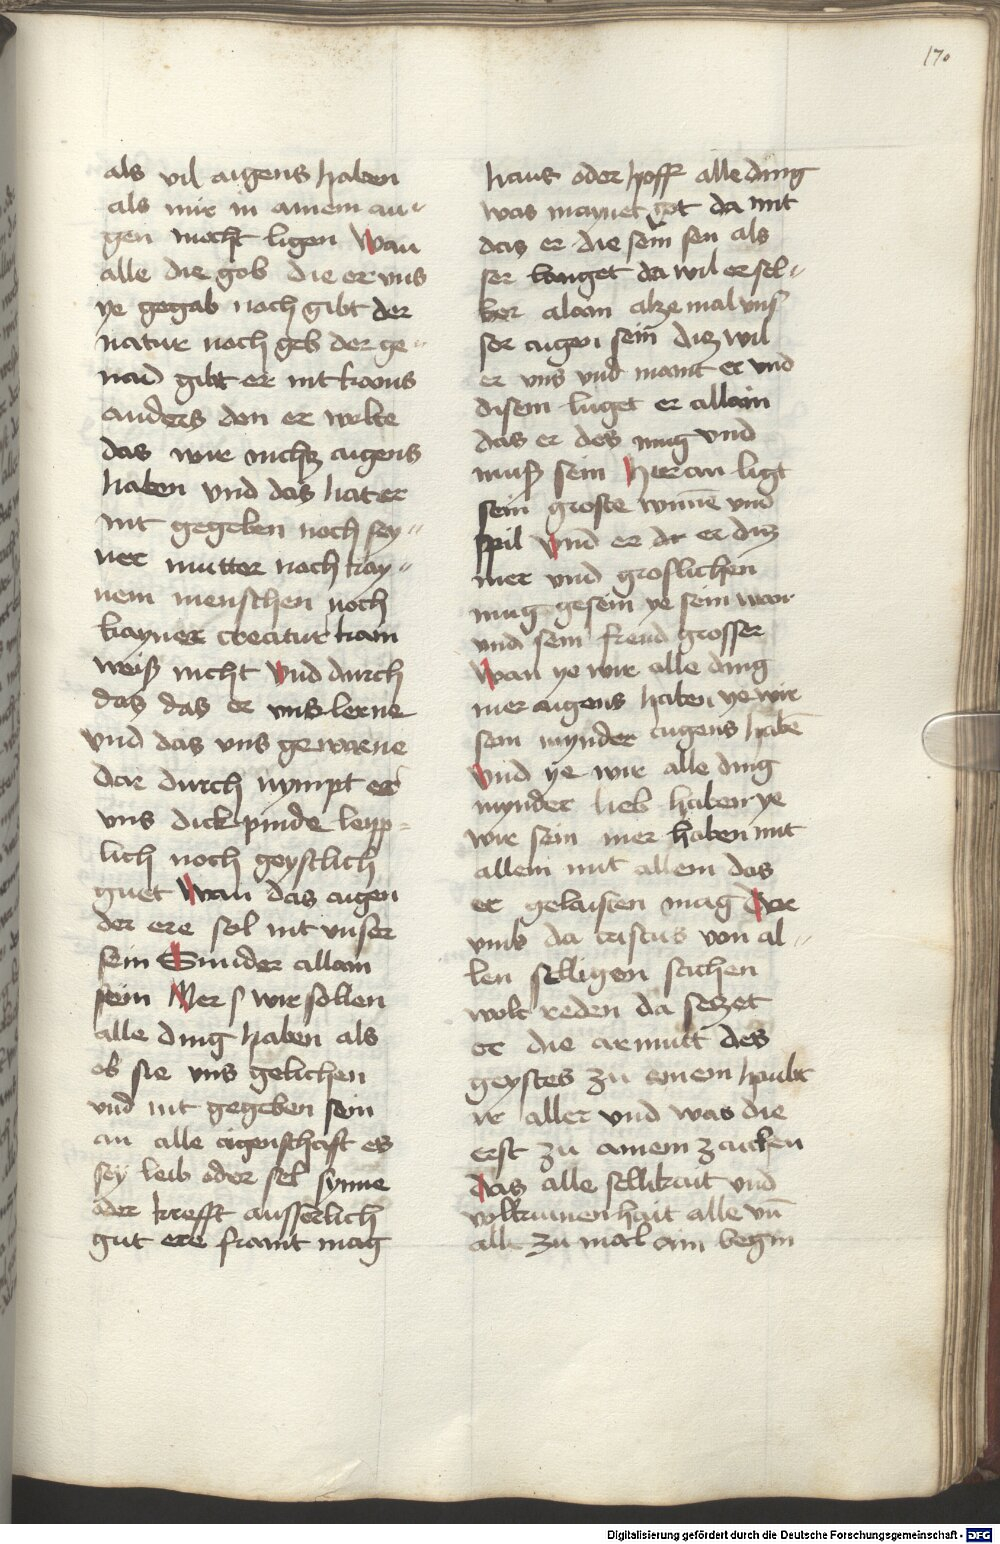 170
als vil aigens haben
als mir in ainem au-
gen mocht ligen Wan
alle die gob die er uns
ye gegab noch gibt der
natur noch geb der ge-
nad gibt er nit
anders den er wolte
das wir nichtz aigens
haben vnd das hat er
nit gegeben noch sey-
ner mutter noch kay-
nem menschen noch
kayner creatur kain
weiß nicht Vnd durch
daz daz er vns lerne
vnd das vns gewarne
dar durch nympt er
vns dick pinde leyp-
lich noch geystlich
guet Wan das aigen
der ere sol nit vnser
sein Sunder allain
sein Mer wir sollen
alle ding haben als
ob sie vns gelichen
vnd nit gegeben sein
an alle aigenschaft es
sey leib oder sel synne
oder krefft ausserlich
gut ere fraint mag
haus oder hoff alle ding
was maynet got da mit
das er die sem sen als
ser da wil er sel-
ber alain alzemal vns
ser aigen sein diz wil
er vns vnd maint er vnd
disem luget er allain
das er des mug vnd
muß sein Hieran ligt
sein groste wunne vnd
spil Vnd er er diz
mer vnd groslichen
mug gesein ye sein
vnd sein freud grosser
Wan ye wir alle ding
mer aigens haben ye wir
sein mynder aigens habē
Vnd ye wir alle ding
mynder lieb haben ye
wir sein mer haben mit
allem mit allem das
er gelaisten mag Dar
vmb da cristus von al-
len selligen sachen
wolt reden da setzet
er die armutt des
geystes zu einem haubt
ir aller vnd was die
erst zu ainem zaichen
Das alle sellikait vnd
volkumenhait alle vn̄
alle zu mal ain begin
Digitalisierung gefördert durch die Deutsche Forschungsgemeinschaft - DFG